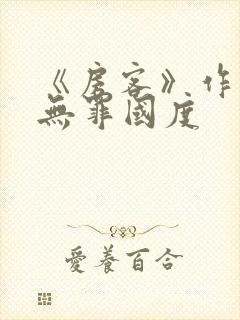 《房客》作
無罪國度
愛養百合